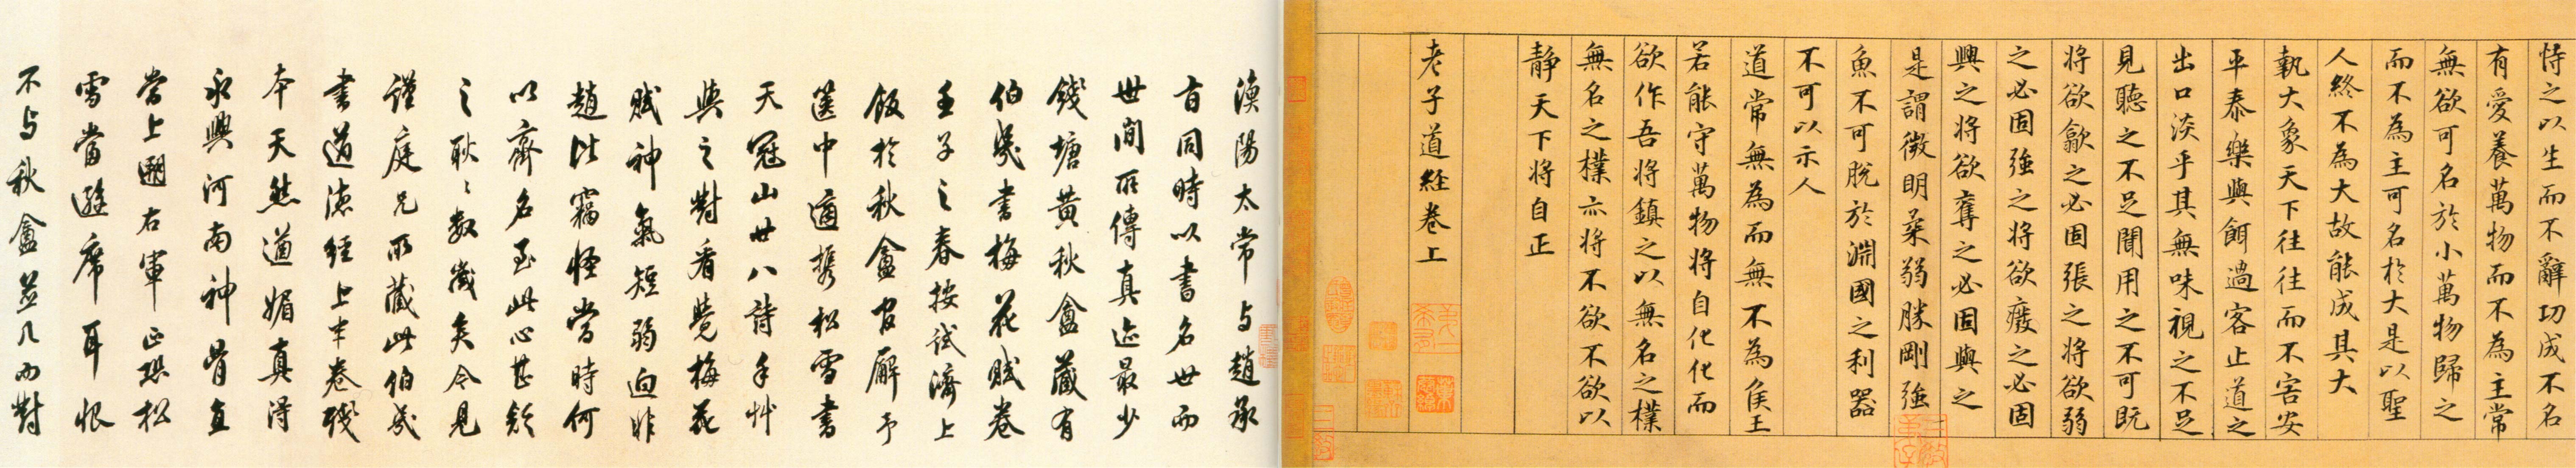 恃之以生而不辭功成不名
有愛養萬物而不為主常
無欲可名於小萬物歸之
而不為主可名於大是以聖
人終不為大故能成其大
執大象天下往往而不害安
平泰樂與餌過客止道之
出口淡乎其無味視之不足
見聽之不足聞用之不可既
將欲歙之必固張之將欲弱
之必固強之將欲廢之必固
興之將欲奪之必固與之
是謂微明柔弱勝剛強
魚不可脫於淵國之利器
不可以示人
道常無為而無不為侯王
若能守萬物將自化化而
欲作吾將鎮之以無名之樸
無名之樸亦將不欲不欲以
靜天下將自正
老子道經卷上
漁陽太常与趙承
旨同時以書名世而
世間所傳真迹最少
錢塘黃秋盦藏有
伯幾書梅花賦卷
壬子之春按試濟上
飯於秋盦官廨予
篋中適攜松雪書
天冠山廿八詩手艸
與之對看覺梅花
賦神氣短弱迥非
趙比竊怪當時何
以齊名至此心甚飫
之耿耿數歲矣今見
謹庭兄所藏此伯幾
書道德經上半卷殘
本天然遒媚真得
永興河南神骨直
當上溯右軍正恐松
雪當避席耳恨
不与秋盦並几而對